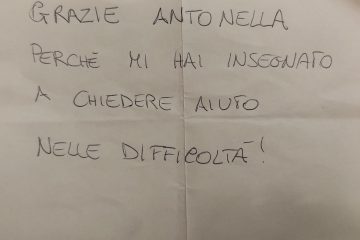 GRAZIE ANTONELLA
PERCHÈ MI HAI INSEGNATO
A CHIEDERE AIUTO
NELLE DIFFICOLTÀ!